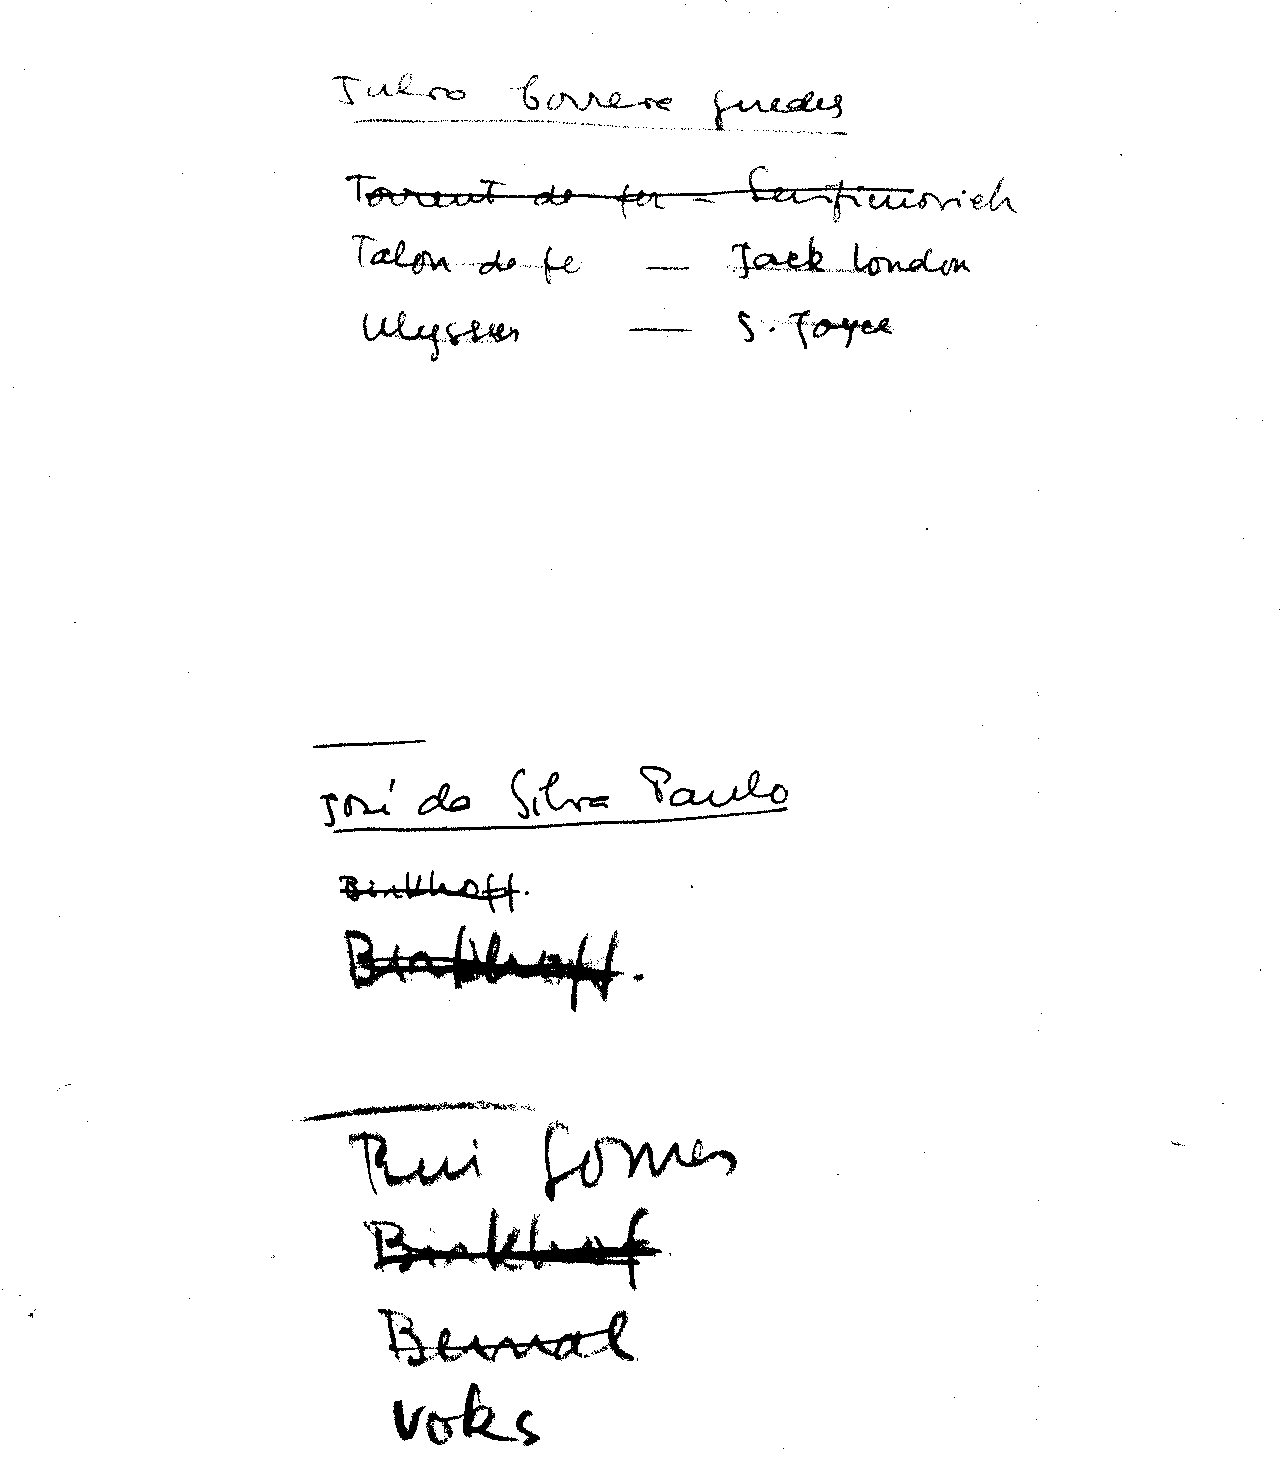 Julio Correia Guedes
Torrent de fer - Serafimovich
Talon de fe — Jack London
Ulysses — S. Joyce
José da Silva Paulo
Birkhoff.
Birkhoff.
Rui Gomes
Birkhof
Bernal
Voks